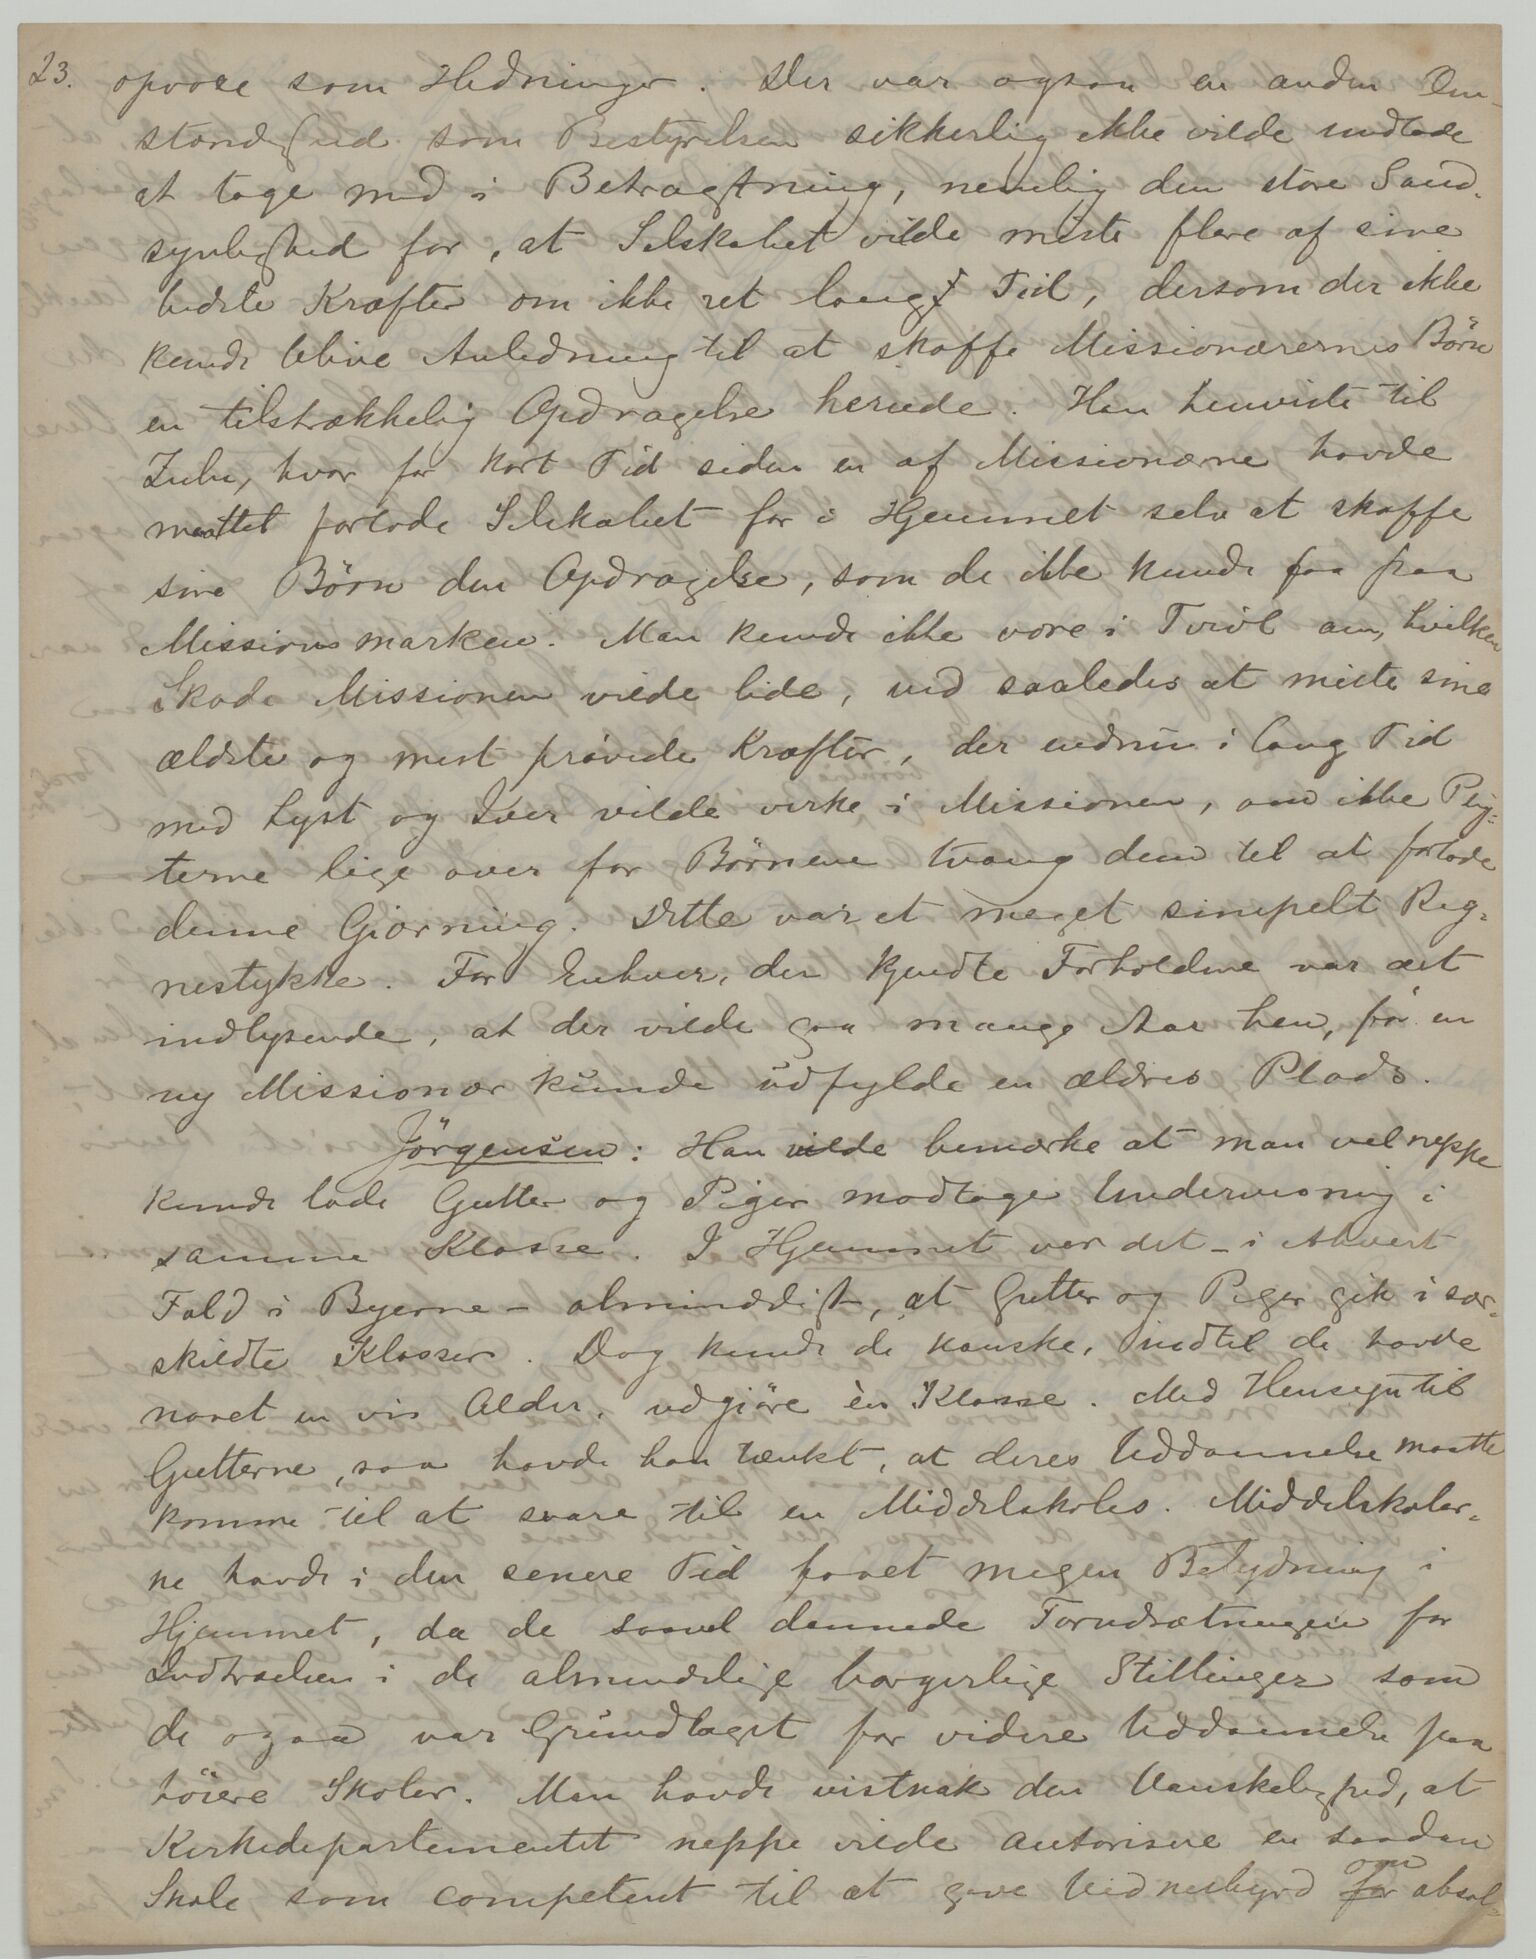 23. opvoxe som Hedninger. Der var ogsaa en anden Om-
stændighed som Bestyrelsen sikkerlig ikke vilde undlade
at tage med i Betragtning, nemlig den store Sand-
synlighed for, at Selskabet vilde miste flere af sine
bedste Kræfter om ikke ret lang Tid, dersom der ikke
kunde blive Anledning til at skaffe Missionærernes Børn
en tilstrækkelig Opdragelse herude. Han henviste til
Zulu, hvor for kort Tid siden en af Missionærne havde
maattet forlade Selskabet for i Hjemmet selv at skaffe
sine Børn den Opdragelse, som de ikke kunde faa paa
Missionsmarken. Man kunde ikke være i Tvivl om, hvilken
Skade Missionen vilde lide, ved saaledes at miste sine
ældste og mest prøvede Kræfter, der endnu i lang Tid
med Lyst og Iver vilde virke i Missionen, om ikke Plig-
terne lige over for Børnene tvang dem til at forlade
denne Gjerning. Dette var et meget simpelt Reg-
nestykke. For Enhver, der kjendte Forholdene var det
indlysende, at der vilde gaa mange Aar hen, før en
ny Missionær kunde udfylde en ældres Plads.
Jörgensen: Han vilde bemærke at man vel neppe
kunde lade Gutter og Piger modtage Undervisning i
samme Klasse. I Hjemmet var det - i ethvert
Fald i Byerne - almindeligt, at Gutter og Piger gik i sær-
skildte Klasser. Dog kunde de kanske, indtil de havde
naaet en vis Alder, udgjöre én Klasse. Med Hensyn til
Gutterne, saa havde han tænkt, at deres Uddannelse maatte
komme til at svare til en Middelskoles. Middelskoler-
ne havde i den senere Tid faaet megen Betydning i
Hjemmet, da de saavel dannede Forudsætningen for
Indtrædsen i de almindelige borgerlige Stillinger som
de ogsaa var Grundlaget for videre Uddannelse paa
höiere Skoler. Man havde vistnok den Vanskelighed, at
Kirkedepartementet neppe vilde autorisere en saadan
Skole som competent til at give Vidnesbyrd om absol-